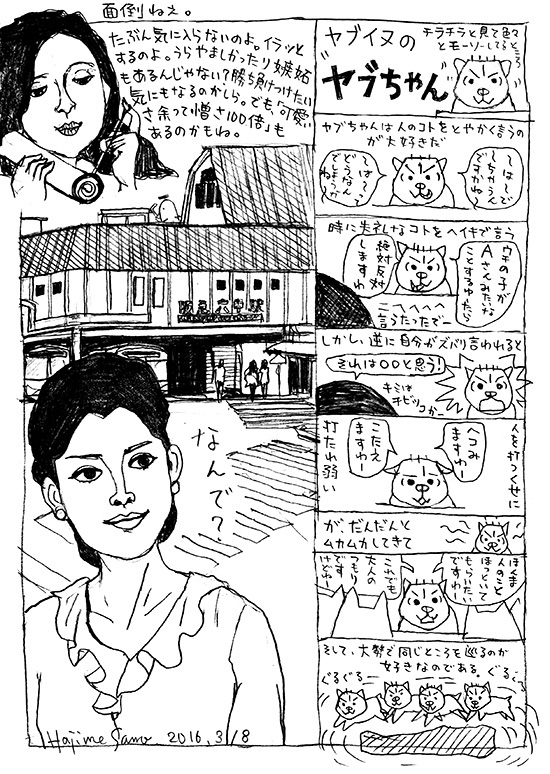 面倒ねぇ。
たぶん気に入らないのよ。イラッと
するのよ。うらやましかったり嫉妬
もあるんじゃない?勝ち負けつけたい
気にもなるのかしら。でも、「可愛い
さ余って憎さ100倍」も
あるのかもね。
阪急六甲駅
なんで?
Hajime Sano 2016,3/8
ヤブイヌの
"ヤブちゃん"
チラチラと見て色々
とモーソーしてるところ
ヤブちゃんは人のコトをとやかく言うの
が大好きだ
〜は〜で
しちゃうん
ですかね?
〜は〜で
どうなんで
しょうか
ね?
時に失礼なコトをヘイキで言う
ウチの子が
Aさんみたいな
ことするゆうたら
絶対反対
しますわ
ニヘヘヘヘ
言うたったでー
しかし、逆に自分がズバリ言われると
それは〇〇と思う!
キミは
チビッコかー
人を打つくせに
打たれ弱い
ヘコみ
ますわー
こたえ
ますわー
が、だんだんと
ムカムカしてきて
ほんま
人のこと
ほっといて
もらいたい
ですわー
これでも
大人の
つもり
です
けどねー
そして、大勢で同じところを巡るのが
好きなのである。
ぐるぐるー
ぐるぐるー